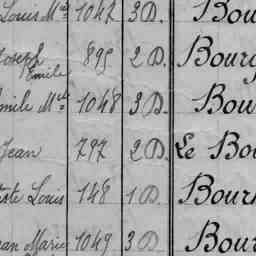 Louis M^el 1047 3 D. Bou
Joseph Emile 895 2 D. Bourg
Emile M^el 1048 3 D. Bou
Jean 797 2 D. Le Bou
Louis 148 1 D. Bourh
Marie 1049 3 D Bour